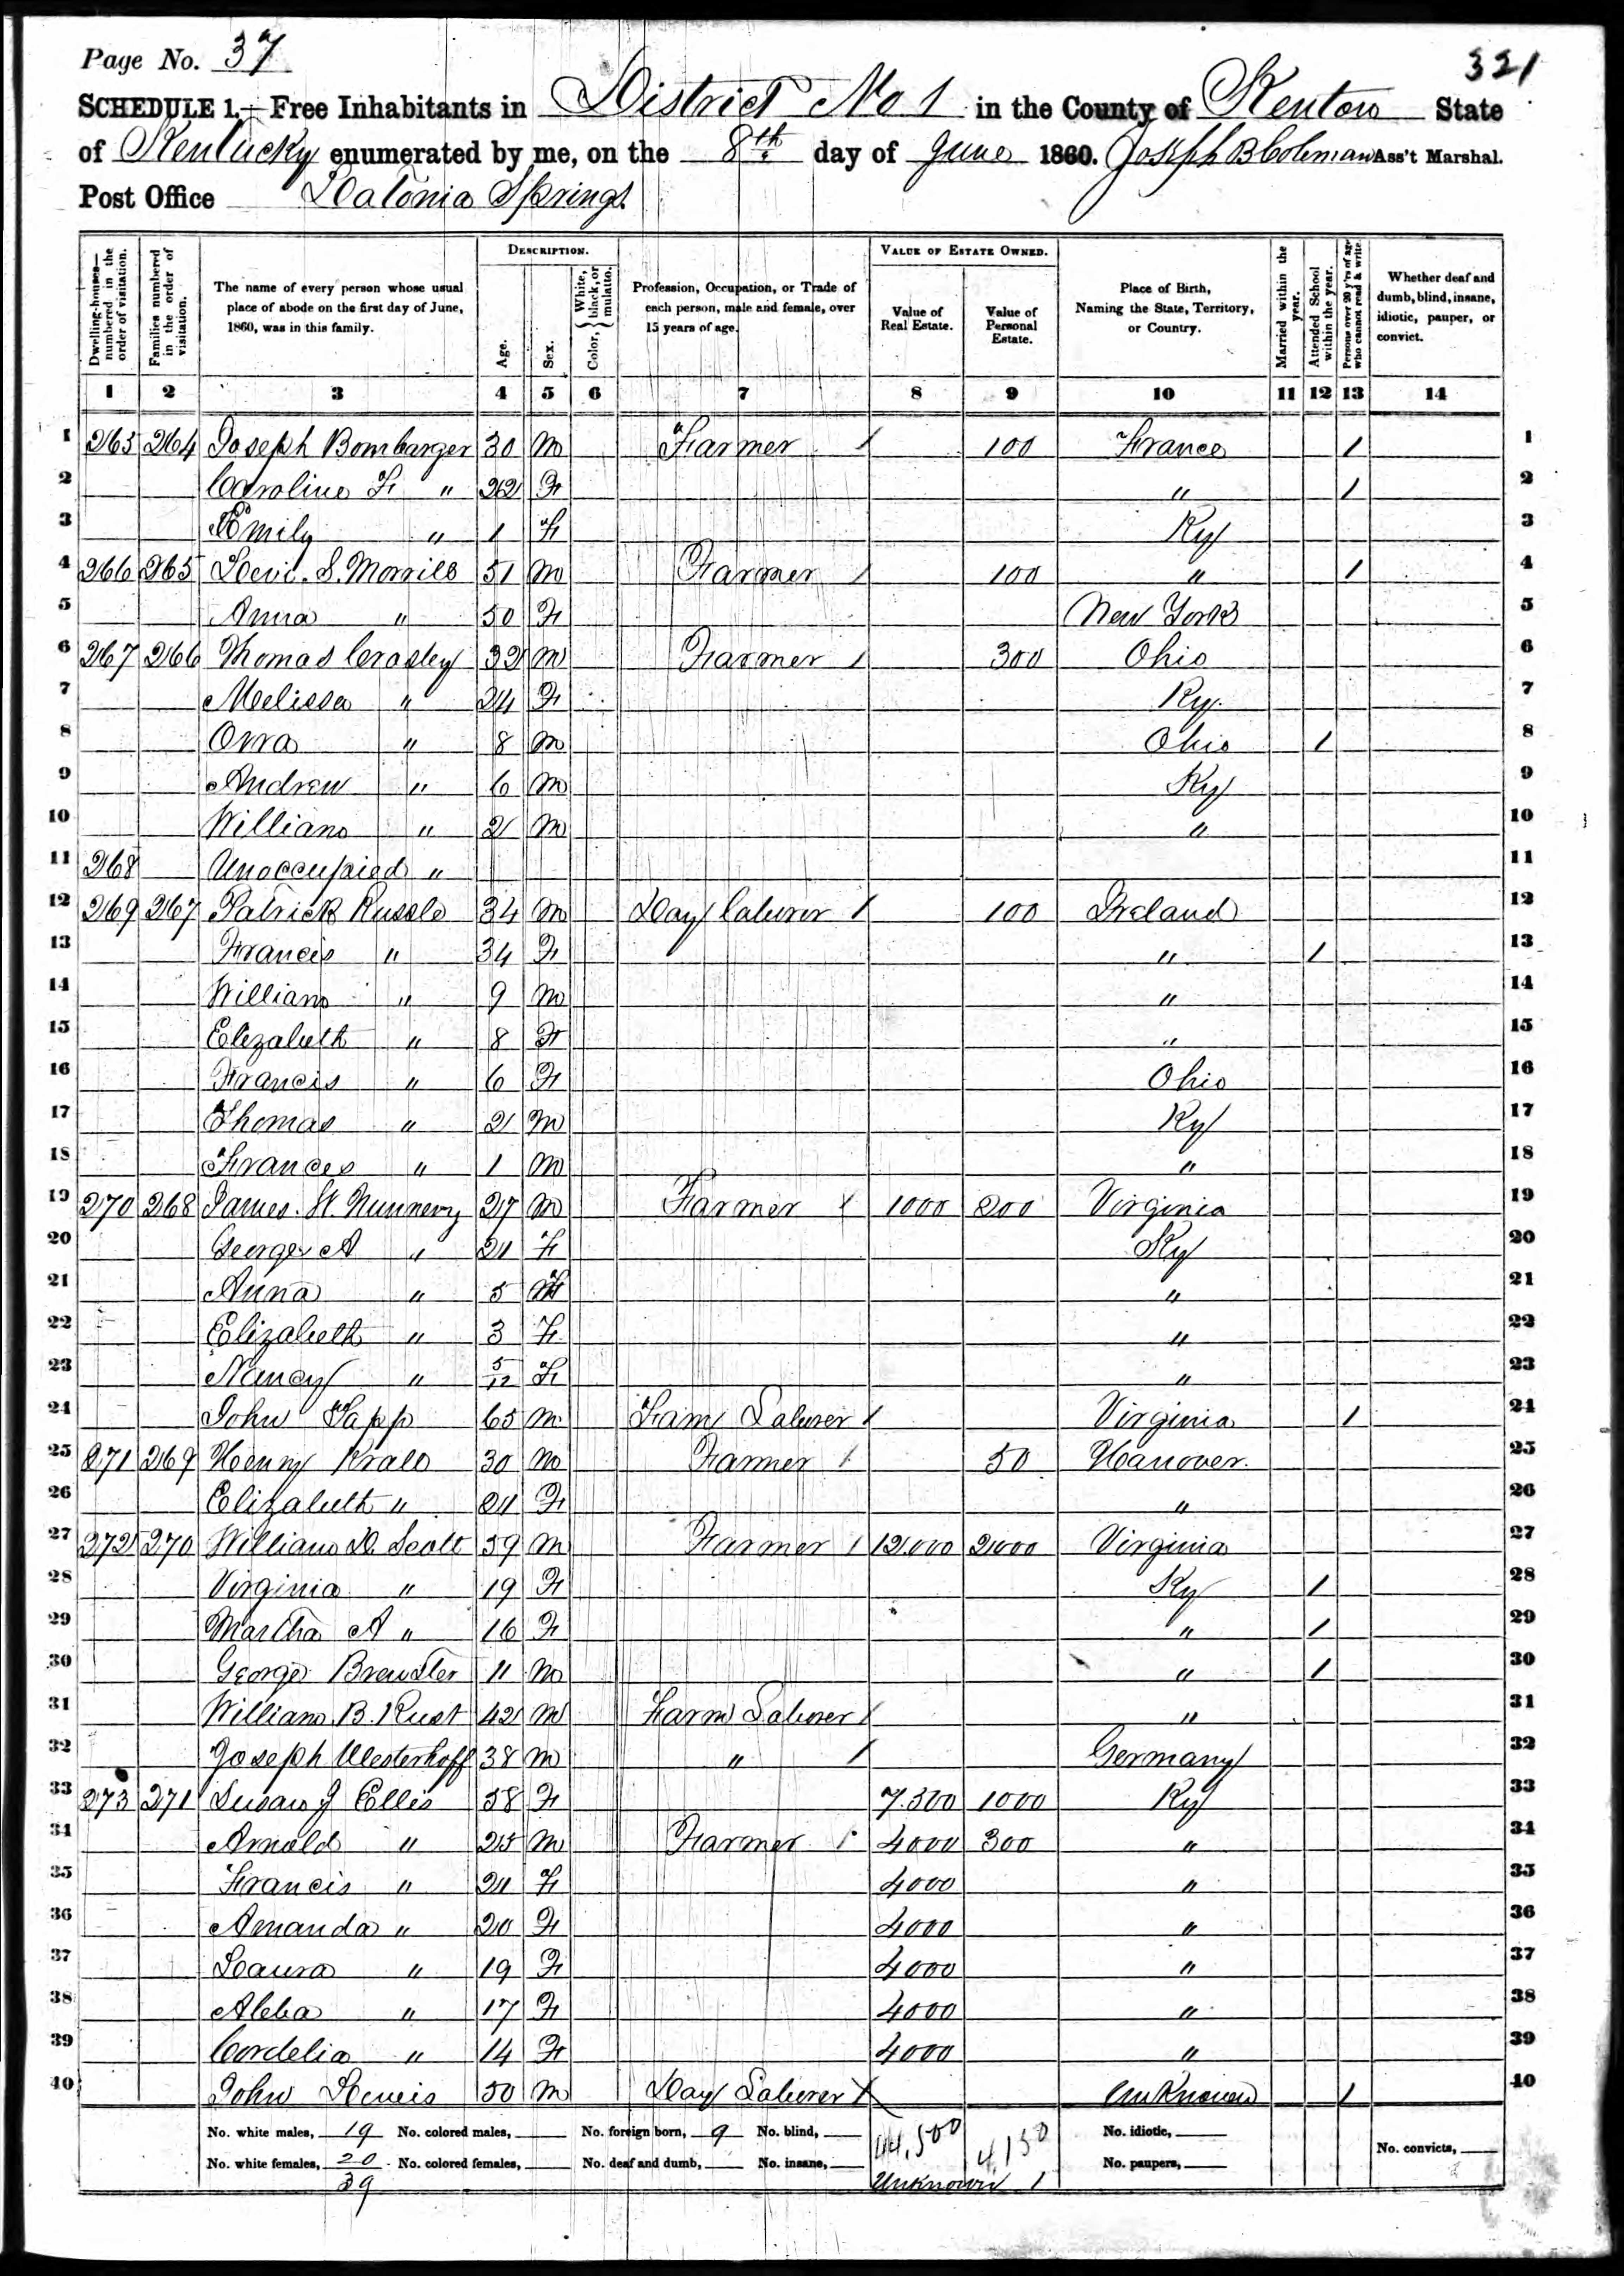 Page No. 37
321
SCHEDULE 1.—Free Inhabitants in District No 1 in the County of Kenton State
of Kentucky enumerated by me, on the 8th day of June 1860. Joseph B Coleman Ass't Marshal.
Post Office Latonia Springs
Dwelling-houses—numbered in the order of visitation.
Families numbered in the order of visitation.
The name of every person whose usual place of abode on the first day of June, 1860, was in this family.
DESCRIPTION.
Age.
Sex.
Color, { White, black, or mulatto.
Profession, Occupation, or Trade of each person, male and female, over 15 years of age.
VALUE OF ESTATE OWNED.
Value of Real Estate.
Value of Personal Estate.
Place of Birth, Naming the State, Territory, or Country.
Married within the year.
Attended School within the year.
Persons over 20 y'rs of age who cannot read & write.
Whether deaf and dumb, blind, insane, idiotic, pauper, or convict.
1 2 3 4 5 6 7 8 9 10 11 12 13 14
1 265 264 Joseph Bombarger 30 M Farmer / 100 France / 1
2 Caroline F " 22 F " / 2
3 Emily " 1 F Ky 3
4 266 265 Levi. S. Morrill 51 M Farmer / 100 " / 4
5 Anna " 50 F New York 5
6 267 266 Thomas Crosley 32 M Farmer / 300 Ohio 6
7 Melissa " 24 F Ky. 7
8 Orra " 8 M Ohio / 8
9 Andrew " 6 M Ky 9
10 William " 2 M " 10
11 268 Unoccupied " 11
12 269 267 Patrick Russle 34 M Day laborer / 100 Ireland 12
13 Francis " 34 F " / 13
14 William " 9 M " 14
15 Elizabeth " 8 F " 15
16 Francis " 6 F Ohio 16
17 Thomas " 2 M Ky 17
18 Frances " 1 M " 18
19 270 268 James. H. Nunnery 27 M Farmer / 1000 200 Virginia 19
20 George A " 21 F Ky 20
21 Anna " 5 F " 21
22 Elizabeth " 3 F " 22
23 Nancy " 5/12 F " 23
24 John Tapp 65 M Farm Laborer / Virginia / 24
25 271 269 Henry Krall 30 M Farmer / 50 Hanover. 25
26 Elizabeth " 21 F " 26
27 272 270 William D. Scott 59 M Farmer / 12.000 2000 Virginia 27
28 Virginia " 19 F Ky / 28
29 Martha A " 16 F " / 29
30 George Brewster 11 M " / 30
31 William B. Rust 42 M Farm Laborer / " 31
32 Joseph Westerhoff 38 M " / Germany 32
33 273 271 Susan J Ellis 58 F 7.500 1000 Ky 33
34 Arnold " 25 M Farmer / 4000 300 " 34
35 Francis " 21 F 4000 " 35
36 Amanda " 20 F 4000 " 36
37 Laura " 19 F 4000 " 37
38 " 17 F 4000 " 38
39 Cordelia " 14 F 4000 " 39
40 John Lewis 50 M Day Laborer / Unknown / 40
No. white males, 19 No. colored males, No. foreign born, 9 No. blind, 44,500 4,150 No. idiotic,
No. white females, 20 No. colored females, No. deaf and dumb, No. insane, No. paupers, No. convicts,
39 Unknown 1